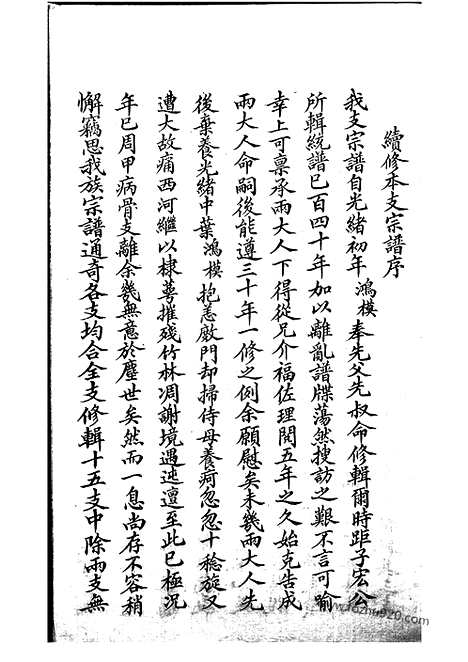 續修本支宗譜序
我支宗譜自光緒初年鴻模奉先父先叔命修輯爾時距子宏公
所輯統譜已百四十年加以離亂譜牒蕩然搜訪之艱不言可喻
幸上可稟承兩大人下得從兄介福佐理閱五年之久始克告成
兩大人命嗣後能遵三十年一修之例余願慰矣未幾兩大人先
後棄養光緒中葉鴻模抱恙廢門却掃侍母養疴忽忽十稔旋又
遭大故痛西河繼以棣萼摧殘竹林凋謝境遇迍邅至此已極況
年已周甲病骨支離余幾無意於塵世矣然而一息尚存不容稍
懈竊思我族宗譜通奇各支均合全支修輯十五支中除兩支無
www.fozhu920.com